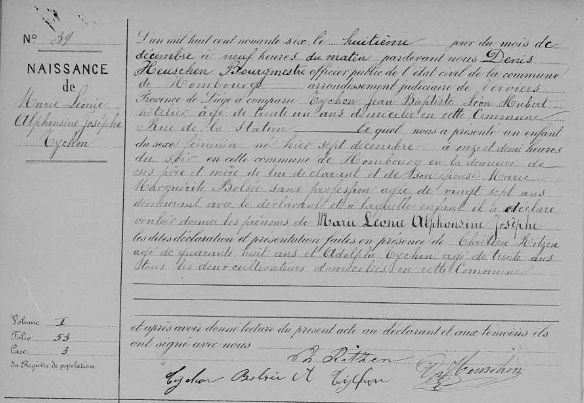 N° 39
NAISSANCE
de
Marie Léonie
Alphonsine Josèphe
Tychon
L'an mil huit cent nonante six le huitième jour du mois de
décembre à neuf heures du matin pardevant nous Denis
Heuschen Bourgmestre officier public de l'état civil de la commune
de Hombourg arrondissement judiciaire de Verviers
Province de Liège a comparu Tychon Jean Baptiste Léon Hubert
hôtelier âgé de trente un ans domicilié en cette Commune
Rue de la Station lequel nous a présenté un enfant
du sexe féminin né hier sept décembre à onze et demie heures
du soir en cette commune de Hombourg en la demeure de
ses père et mère de lui déclarant et de son épouse Marie
Marguerite sans profession âgée de vingt sept ans
demeurant avec le déclarant et à laquelle enfant il a déclaré
vouloir donner les prénoms de Marie Léonie Alphonsine Josèphe
les dites déclaration et présentation faites en présence de
âgé de quarante huit ans et Adolphe Tychon âgé de trente ans
tous les deux cultivateurs domiciliés en cette Commune
et après avoir donné lecture du présent acte au déclarant et aux témoins ils
ont signé avec nous
Tychon
Volume I
Folio 55
Case 3
du Registre de population